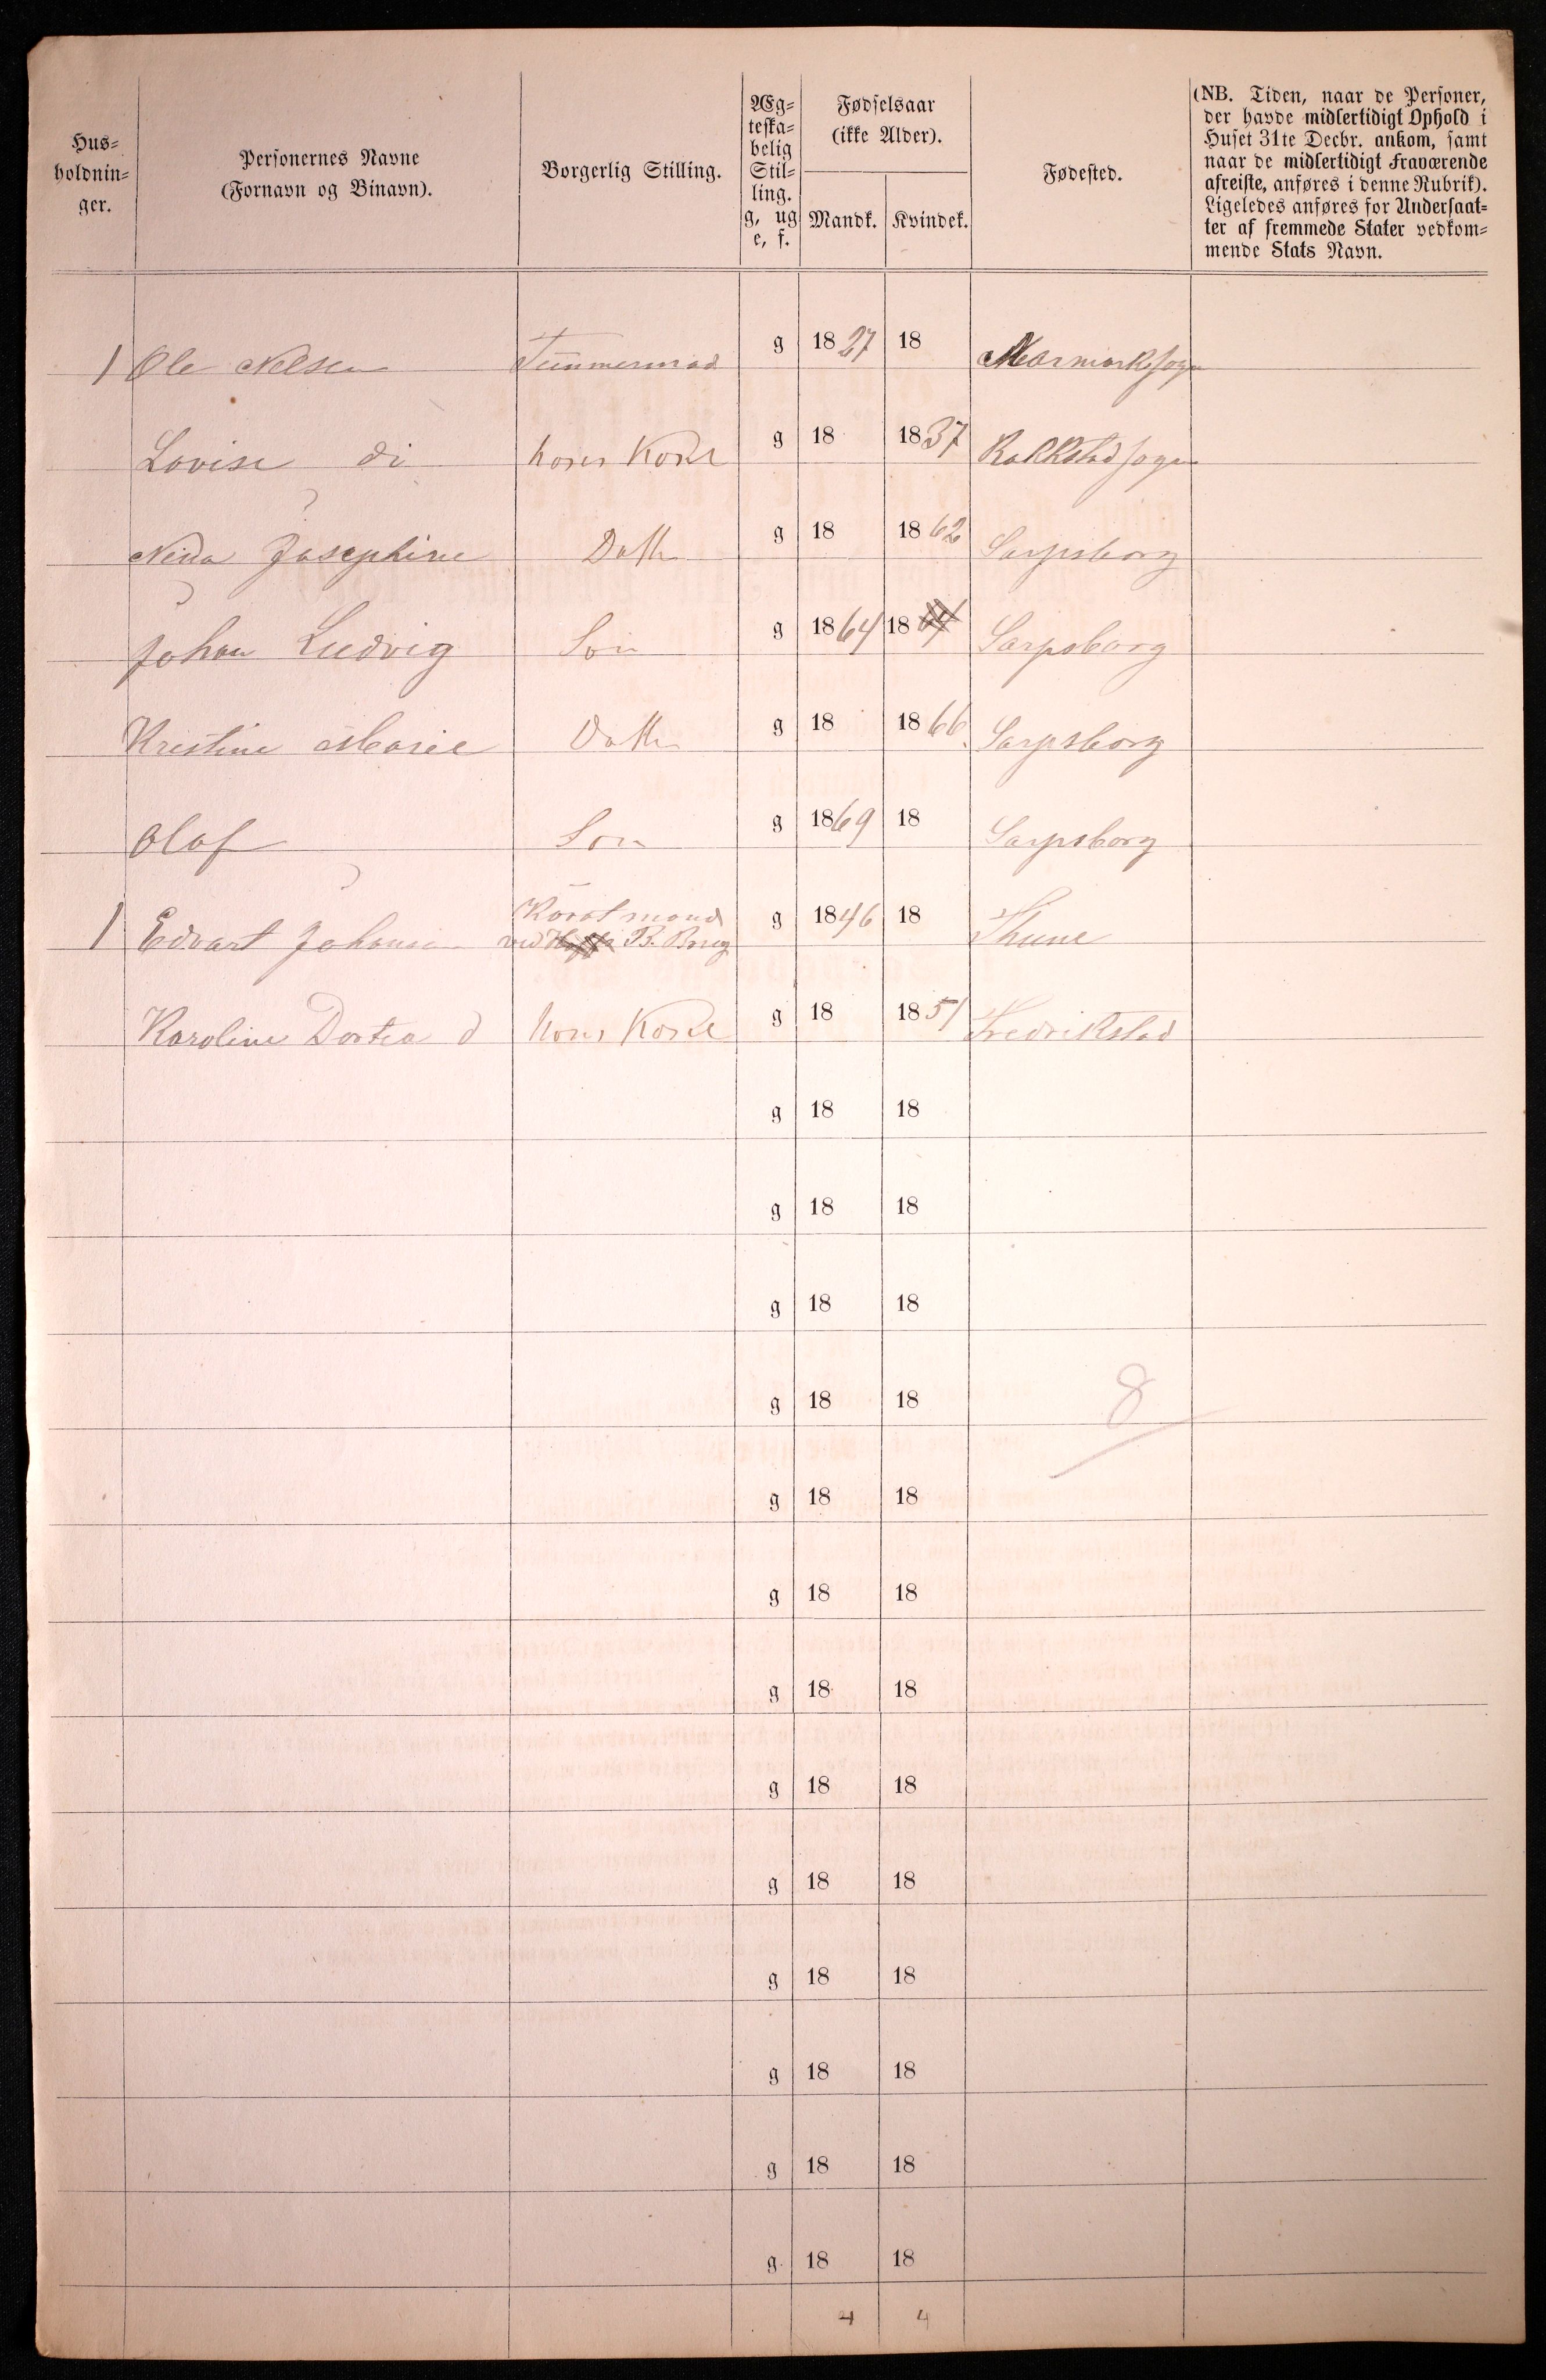 Hus-
holdnin-
ger.
Personernes Navne
(Fornavn og Binavn).
Borgerlig Stilling.
Æg-
teska-
belig
Stil-
ling.
g, ug
e, f.
Fødselsaar
(ikke Alder).
Mandk. Kvindek.
Fødested.
(NB. Tiden, naar de Personer,
der havde midlertidigt Ophold i
Huset 31te Decbr. ankom, samt
naar de midlertidigt Fraværende
afreiste, anføres i denne Rubrik).
Ligeledes anføres for Undersaat-
ter af fremmede Stater vedkom-
mende Stats Navn.
1 Ole Nelsen Tømmermad g 1827 18 Marmark sogn
Lovise di hans Kone g 18 1837 Rakkstad sogn
Josephine Datt g 18 1862 Sarpsborg
Johan Ludvig Søn g 1864 18 Sarpsborg
Kristine Marie Datt g 18 1866 Sarpsborg
Olaf Søn g 1869 18 Sarpsborg
1 Edvart Johansen
ved B. Brug g 1846 18 Thune
Karoline Dortea d hans Kone g 18 1851 Fredrikstad
g 18 18
g 18 18
g 18 18
g 18 18 8
g 18 18
g 18 18
g 18 18
g 18 18
g 18 18
g 18 18
g 18 18
g 18 18
g 18 18
4 4